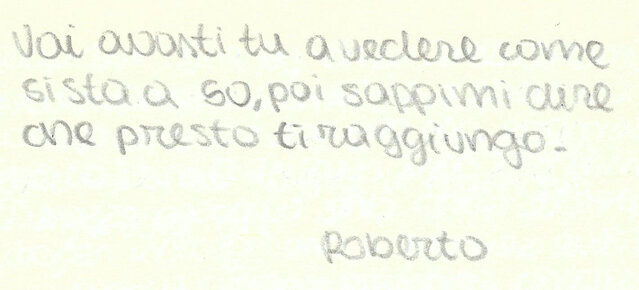 Vai avanti tu a vedere come
si sta a 50, poi sappimi dire
che presto ti raggiungo.
Roberto